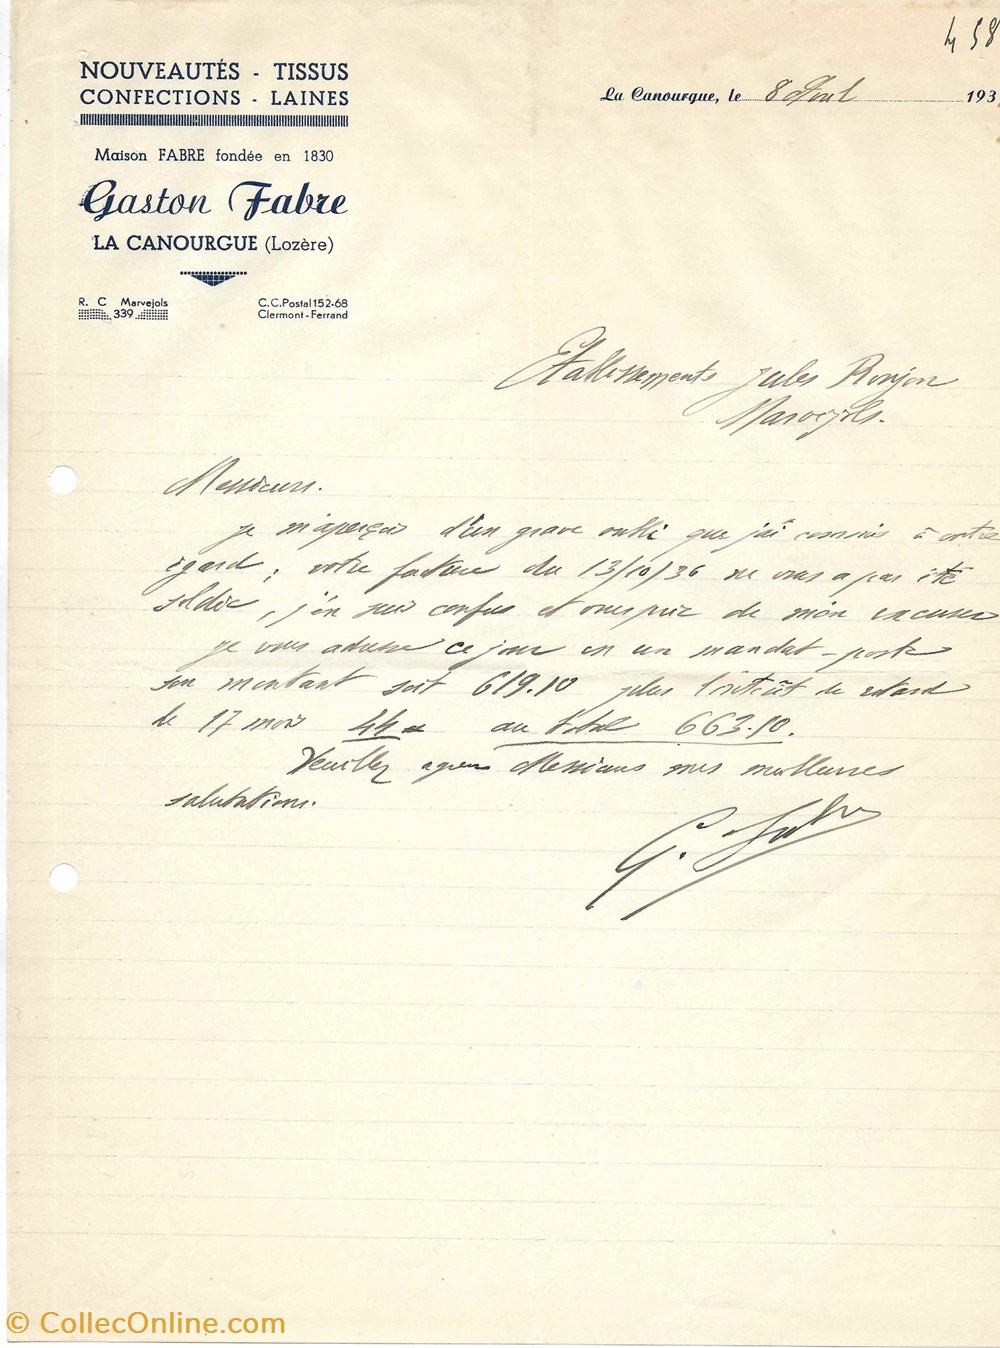 4 38
NOUVEAUTÉS - TISSUS
CONFECTIONS - LAINES
La Canourgue, le 8 Avril 193
Maison FABRE fondée en 1830
Gaston Fabre
LA CANOURGUE (Lozère)
R. C Marvejols
339
C.C.Postal 152-68
Clermont-Ferrand
Etablissements Jules Roujon
Marvejols.
Messieurs.
je m'aperçois d'un grave oubli que j'ai commis à votre
égard ; votre facture du 13/10/36 ne vous a pas été
soldée, j'en suis confus et vous prie de m'en excuser
je vous adresse ce jour en un mandat-poste
son montant soit 619.10 plus l'intérêt de retard
de 17 mois 44 = au total 663.10.
Veuillez agréer Messieurs mes meilleures
salutations.
G. Fabre
© CollecOnline.com